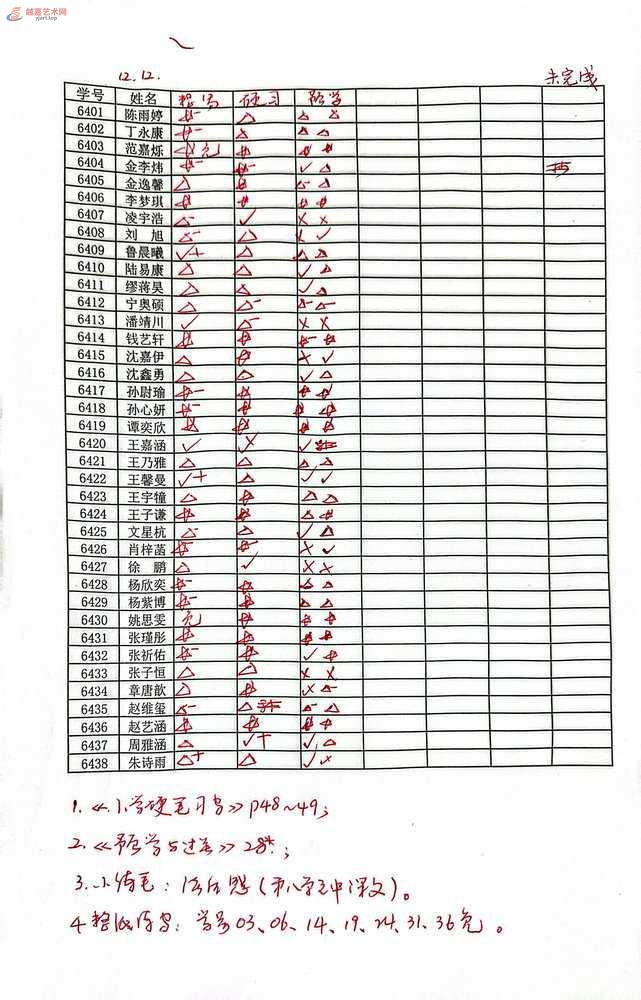 越嘉艺术网
yjart.top
12.12.
未完成
学号 姓名 整写 硬习 预学
6401 陈雨婷
6402 丁永康
6403 范嘉烁
6404 金李炜
6405 金逸馨
6406 李梦琪
6407 凌宇浩
6408 刘 旭
6409 鲁晨曦
6410 陆易康
6411 缪蒋昊
6412 宁奥硕
6413 潘靖川
6414 钱艺轩
6415 沈嘉伊
6416 沈鑫勇
6417 孙尉瑜
6418 孙心妍
6419 谭奕欣
6420 王嘉涵
6421 王乃雅
6422 王馨曼
6423 王宇犝
6424 王子谦
6425 文星杭
6426 肖梓菡
6427 徐 鹏
6428 杨欣奕
6429 杨紫博
6430 姚思雯 免
6431 张瑾彤
6432 张祈佑
6433 张子恒
6434 章唐歆
6435 赵维玺
6436 赵艺涵
6437 周雅涵
6438 朱诗雨
1.《小学硬笔习字》P48~49;
2.《预学与过关》28*;
3.小练笔:
4.整 写:学号03、06、14、19、24、31、36免。